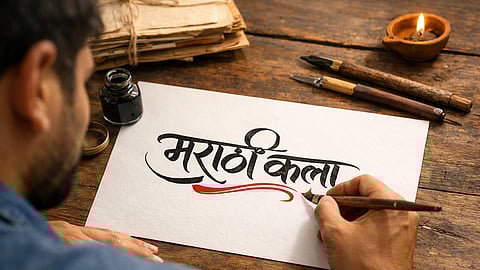 मराठी कला